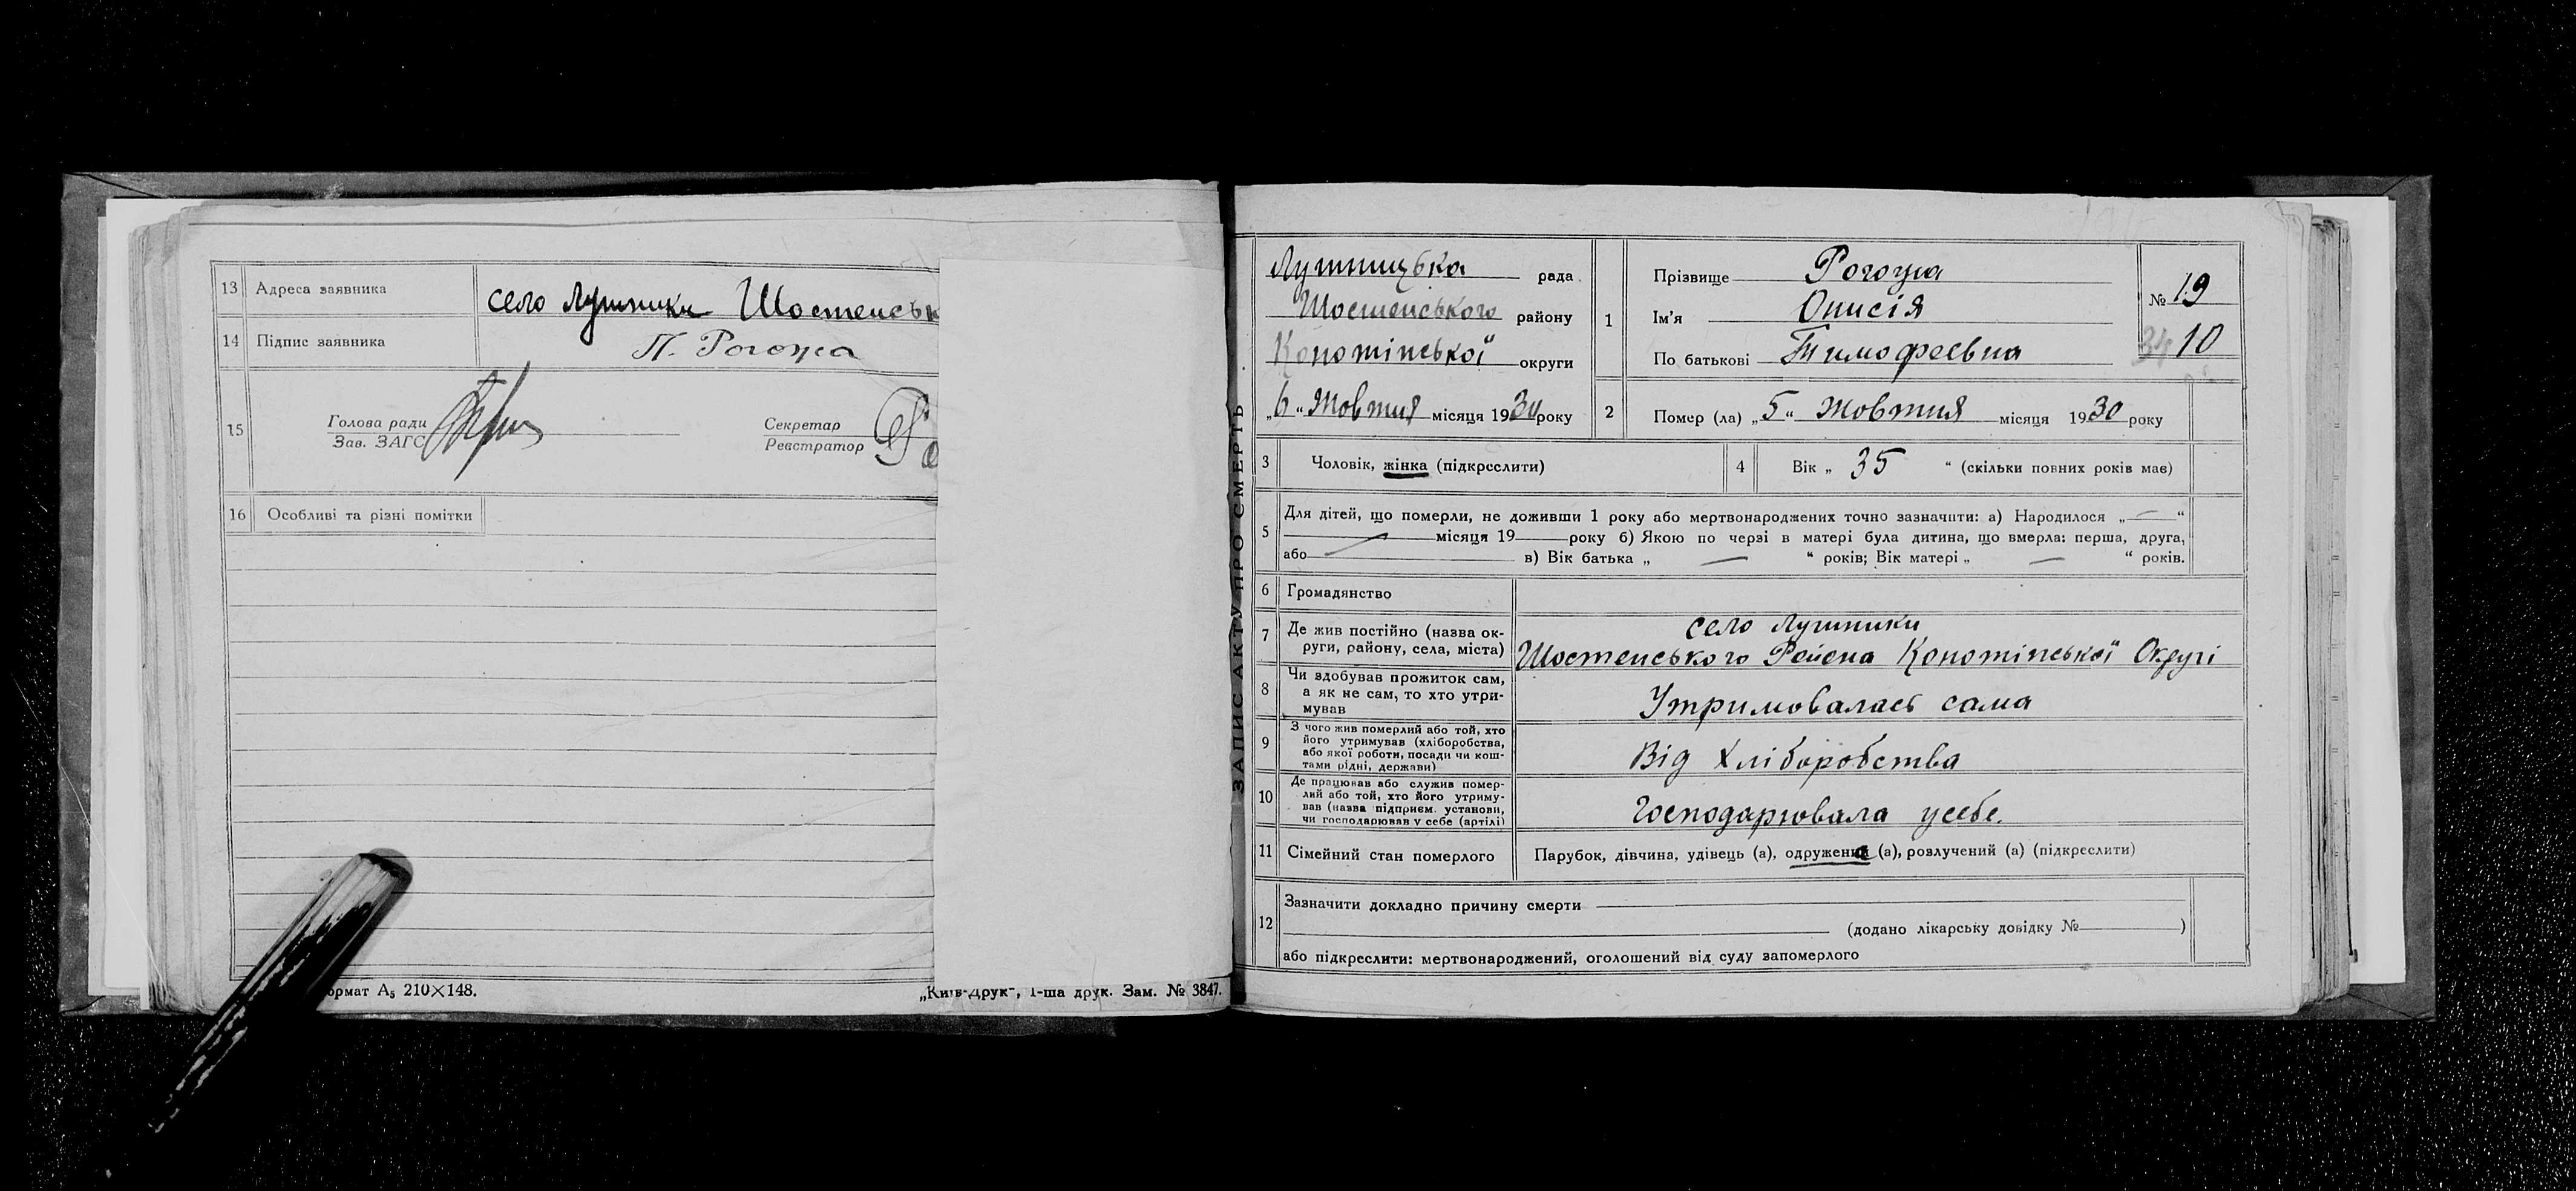 13 Адреса заявника село Лушники Шостенськ
14 Підпис заявника П. Рогожа
15 Голова ради
Зав. ЗАГС
Секретар
Реєстратор
16 Особливі та різні помітки
формат А5 210×148.
„Київ-Друк“, 1-ша друк. Зам. № 3847.
ЗАПИС АКТУ ПРО СМЕРТЬ
Лушницька рада
Шостенського району
Конотіпської округи
„6“ Жовтня місяця 1930 року
1 Прізвище Рогожа
Ім’я Онисія
По батькові Тимофеевна
№ 19
34 10
2 Помер (ла) „5“ Жовтня місяця 1930 року
3 Чоловік, жінка (підкреслити)
4 Вік „ 35 “ (скільки повних років має)
5 Для дітей, що померли, не доживши 1 року або мертвонароджених точно зазначити: а) Народилося „—“
місяця 19 року б) Якою по черзі в матері була дитина, що вмерла: перша, друга,
або в) Вік батька „ — “ років; Вік матері „ — “ років.
6 Громадянство
7 Де жив постійно (назва ок-
руги, району, села, міста)
село Лушники
Шостенського Района Конотіпської Округі
8 Чи здобував прожиток сам,
а як не сам, то хто утри-
мував
Утримовалась сама
9 З чого жив померлий або той, хто
його утримував (хліборобства,
або якої роботи, посади чи кош-
тами рідні, держави)
Від Хліборобства
10 Де працював або служив помер-
лий або той, хто його утриму-
вав (назва підприєм. установи,
чи господарював у себе (артілі)
Господарювала усебе.
11 Сімейний стан померлого Парубок, дівчина, удівець (а), одружена (а), розлучений (а) (підкреслити)
12 Зазначити докладно причину смерти
(додано лікарську довідку № )
або підкреслити: мертвонароджений, оголошений від суду запомерлого